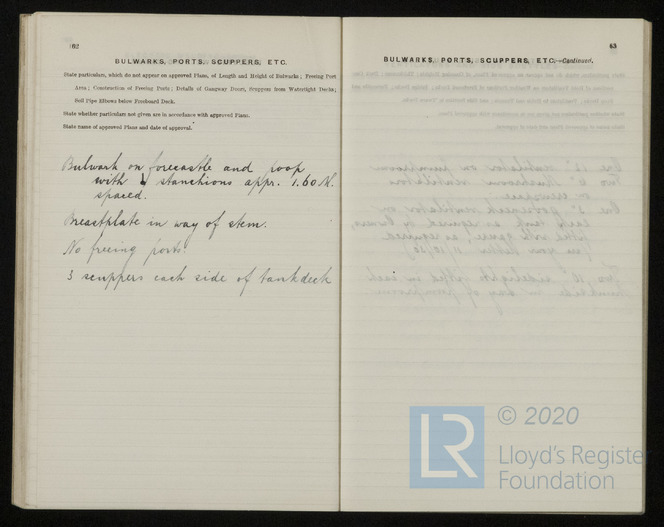 62
BULWARKS, PORTS, SCUPPERS, ETC.
State particulars, which do not appear on approved Plans, of Length and Height of Bulwarks; Freeing Port
Area; Construction of Freeing Ports; Details of Gangway Doors, Scuppers from Watertight Decks;
Soil Pipe Elbows below Freeboard Deck.
State whether particulars not given are in accordance with approved Plans.
State name of approved Plans and date of approval.
Bulwark on forecastle and poop
with stanchions appr. 1.60 M.
spaced.
Breastplate in way of stem.
No freeing ports.
3 scuppers each side of tankdeck
63
BULWARKS, PORTS, SCUPPERS, ETC.—Continued.
LR
© 2020
Lloyd's Register
Foundation